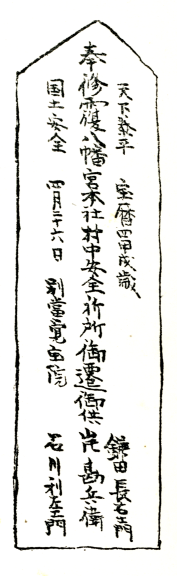 天下泰平　宝暦四甲戌歳　鎌田長右エ門
奉修覆八幡宮本社村中安全祈所御遷御供岩勘兵衛
国土安全　四月二十六日　別當寛宝院　石川利左エ門